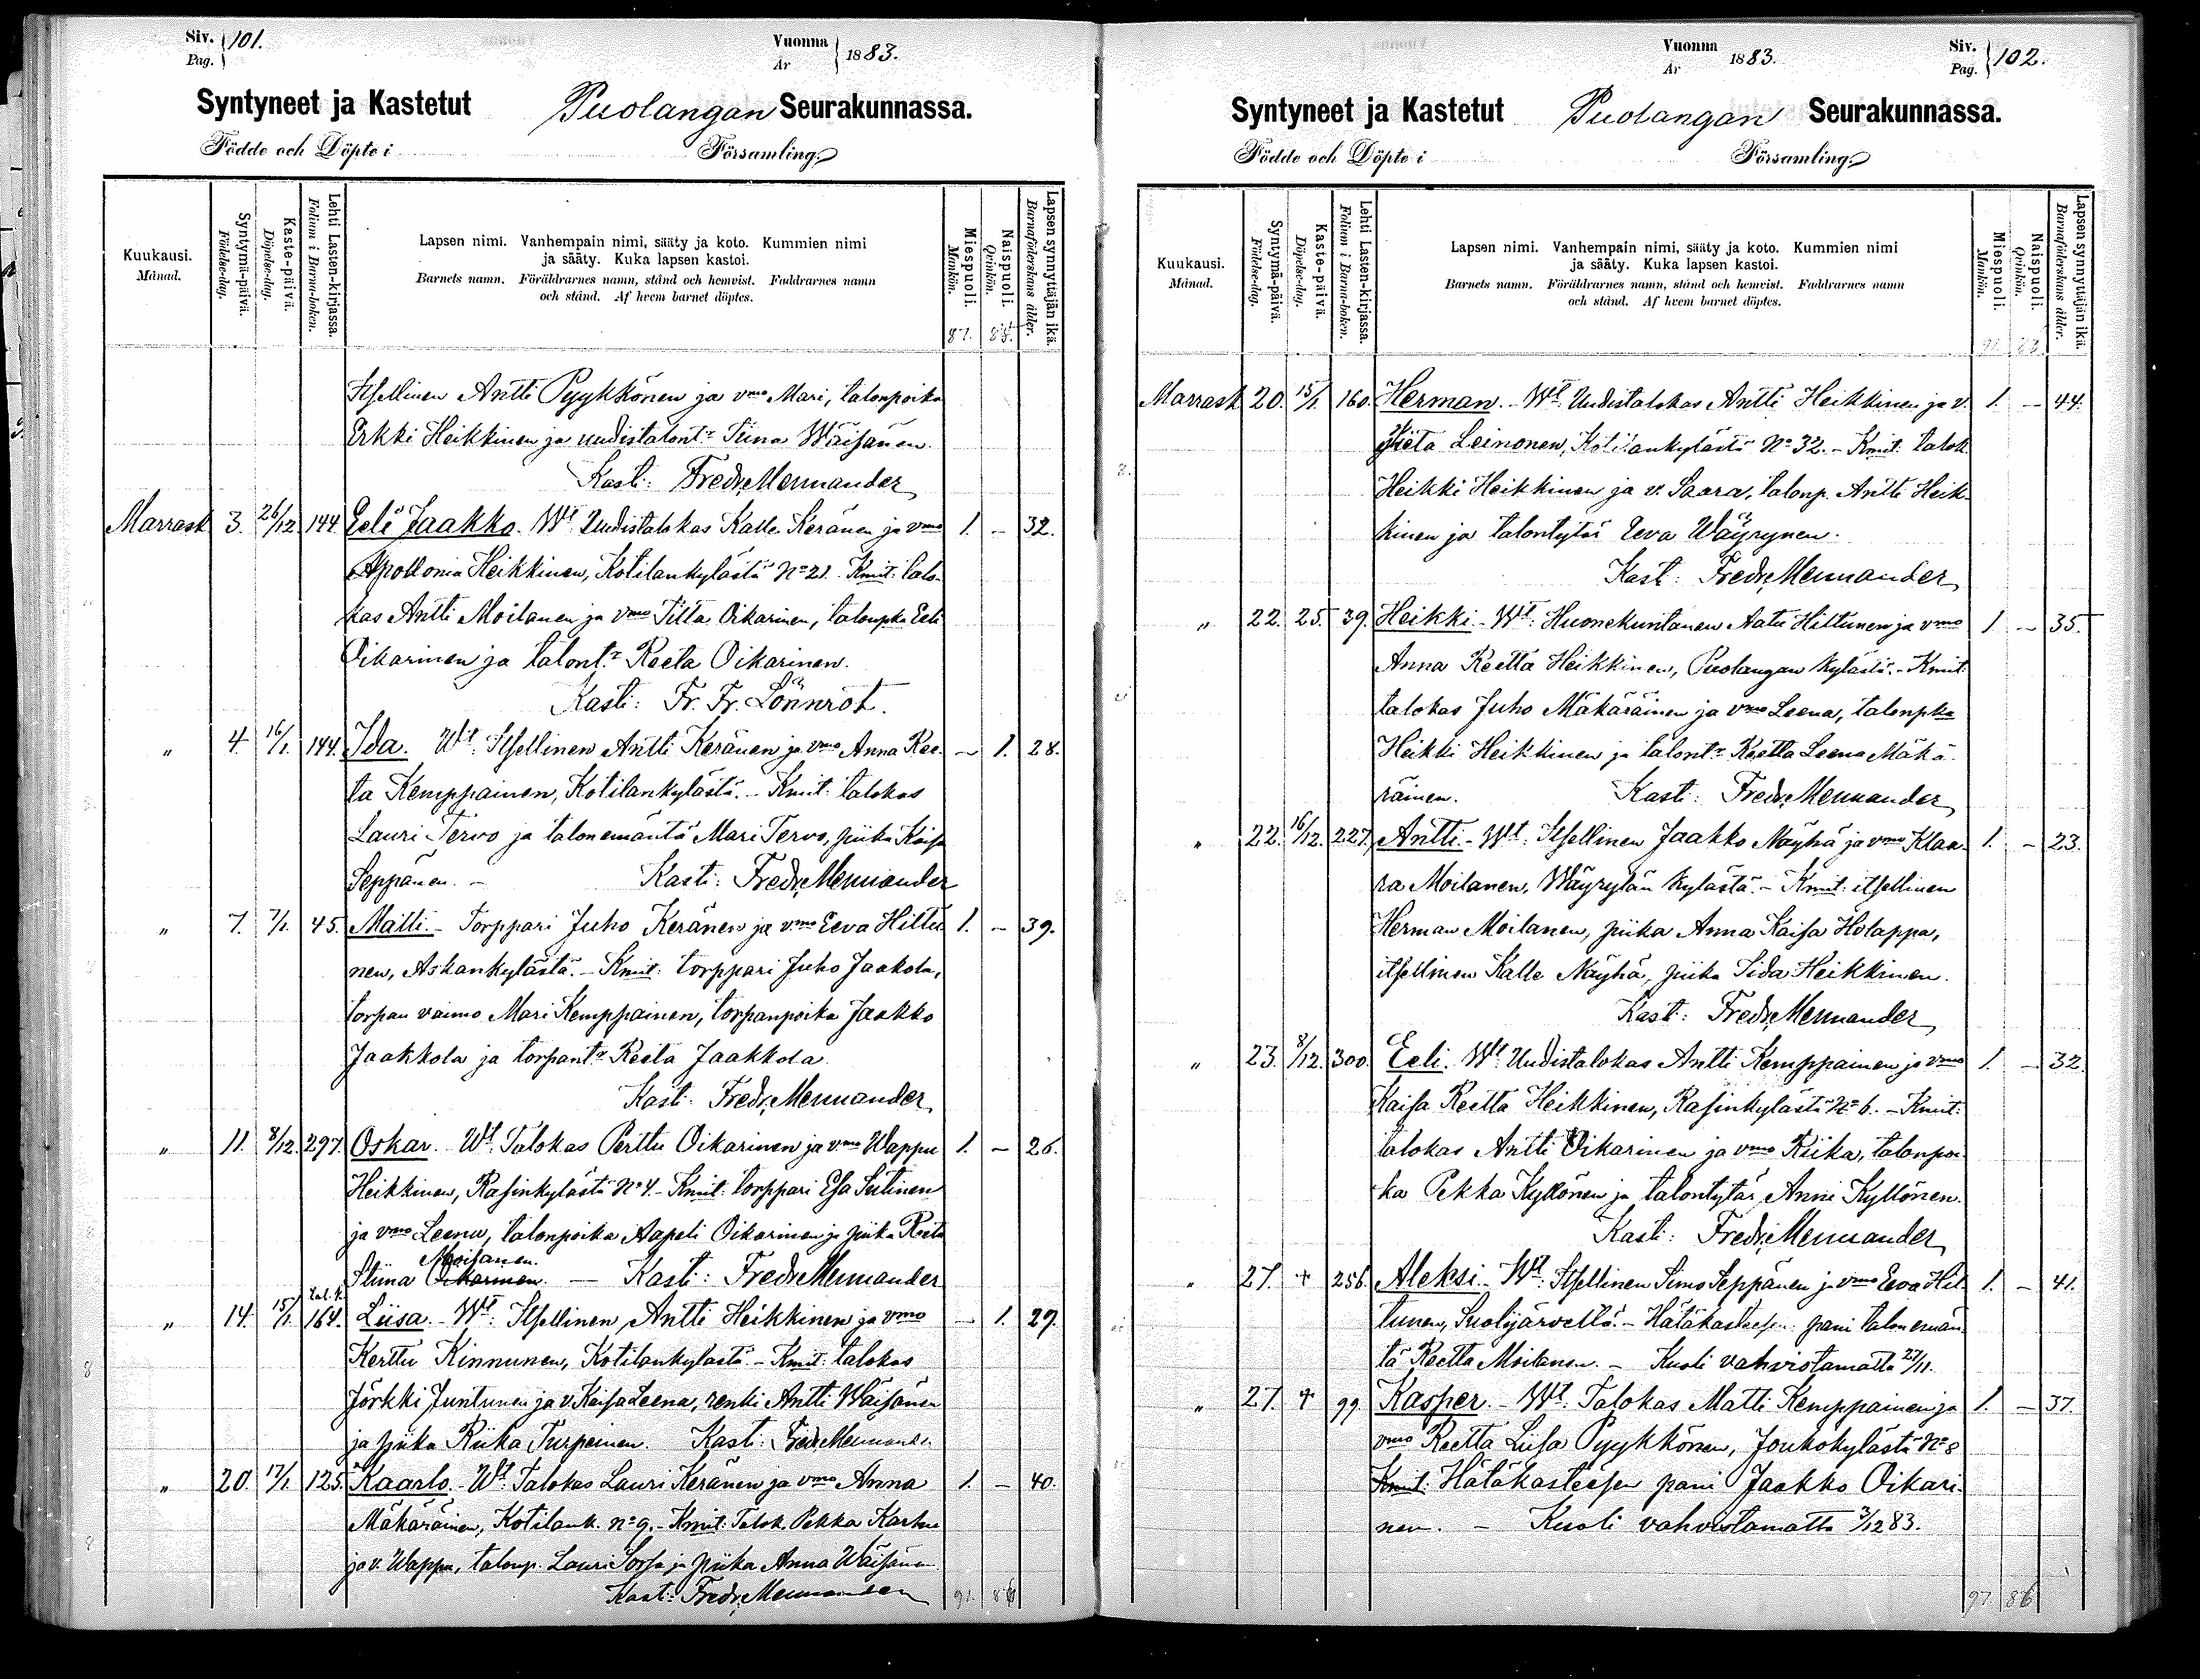 Siv. 101.
Pag.
Vuonna 1883.
År
Syntyneet ja Kastetut Puolangan Seurakunnassa.
Födde och Döpte i Församling.
Kuukausi.
Månad.
Syntymä-päivä.
Födelse-dag.
Kaste-päivä.
Döpelse-dag.
Lehti Lasten-kirjassa.
Folium i Barna-boken.
Lapsen nimi. Vanhempain nimi, sääty ja koto. Kummien nimi
ja sääty. Kuka lapsen kastoi.
Barnets namn. Föräldrarnes namn, stånd och hemvist. Faddrarnes namn
och stånd. Af hvem barnet döptes.
Miespuoli.
Mankön.
Naispuoli.
Qvinkön.
Lapsen synnyttäjän ikä.
Barnaföderskans ålder.
Itsellinen Antti Pyykkönen ja vmo Mari, talonpoika
Erkki Heikkinen ja uudistalont:r Tiina Wäisänen.
Kasti: Fredr. Mennander
Marrask 3. 26/12 144. Eeli Jaakko. Wt. Uudistalokas Kalle Keränen ja vmo 1. – 32.
Apollonia Heikkinen, Kotilankylästä No 21. Kmit: talo-
kas Antti Moilanen ja vmo Tilta Oikarinen, talonpka Eeli
Oikarinen ja talont:r Reeta Oikarinen.
Kasti: Fr. Fr. Lönnrot.
„ 4. 16/1. 144. Ida. Wt. Itsellinen Antti Keränen ja vmo Anna Ree- – 1. 28.
ta Kemppainen, Kotilankylästä. – Kmit: talokas
Lauri Tervo ja talonemäntä Mari Tervo, piika Kaisa
Seppänen. – Kasti: Fredr. Mennander
„ 7. 7/1. 45. Matti. – Torppari Juho Keränen ja vmo Eeva Hiltu 1. – 39.
nen, Askankylästä. – Kmit: torppari Juho Jaakola,
torpan vaimo Mari Kemppainen, torpanpoika Jaakko
Jaakkola ja torpant:r Reeta Jaakkola.
Kasti: Fredr. Mennander
„ 11. 8/12. 297. Oskar. Wt. Talokas Perttu Oikarinen ja vmo Wappu 1. – 26.
Heikkinen, Rasinkylästä No 4. – Kmit: torppari Esa Sutinen
ja vmo Leena, talonpoika Aapeli Oikarinen ja piika Reeta
Moisanen.
Stiina Oikarinen. – Kasti: Fredr. Mennander
„ 14. 15/1. 164. Liisa. – Wt. Itsellinen Antti Heikkinen ja vmo – 1. 29.
Kerttu Kinnunen, Kotilankylästä. – Kmit: talokas
Jörkki Juntunen ja v. Kaisa Leena, renki Antti Wäisänen
ja piika Riika Turpeinen. Kasti: Fredr. Mennander
„ 20. 17/1. 125. Kaarlo. – Wt. Talokas Lauri Keränen ja vmo Anna 1. – 40.
Mäkäräinen, Kotilank. no 9. – Kmit: Talok. Pekka Karhu
ja v. Wappu, talonp. Lauri Sorsa ja piika Anna Wäisänen
Kasti: Fredr. Mennander
Siv. 102.
Pag.
Vuonna 1883.
År
Syntyneet ja Kastetut Puolangan Seurakunnassa.
Födde och Döpte i Församling.
Kuukausi.
Månad.
Syntymä-päivä.
Födelse-dag.
Kaste-päivä.
Döpelse-dag.
Lehti Lasten-kirjassa.
Folium i Barna-boken.
Lapsen nimi. Vanhempain nimi, sääty ja koto. Kummien nimi
ja sääty. Kuka lapsen kastoi.
Barnets namn. Föräldrarnes namn, stånd och hemvist. Faddrarnes namn
och stånd. Af hvem barnet döptes.
Miespuoli.
Mankön.
Naispuoli.
Qvinkön.
Lapsen synnyttäjän ikä.
Barnaföderskans ålder.
Marrask 20. 15/1. 160. Herman. – Wt. Uudistalokas Antti Heikkinen ja v. 1. – 44.
Leinonen, Kotilankylästä No 32. – Kmit: talok.
Heikki Heikkinen ja v. Saara, talonp. Antti Heik-
kinen ja talontytär Eeva Wäyrynen.
Kast: Fredr. Mennander
„ 22. 25. 39. Heikki. – Wt: Huonekuntanen Aatu Hiltunen ja vmo 1. – 35.
Anna Reetta Heikkinen, Puolangan kylästä. – Kmit:
talokas Juho Mäkäräinen ja vmo Leena, talonpka
Heikki Heikkinen ja talont:r Reetta Leena Mäkä-
räinen. Kasti: Fredr. Mennander
„ 22. 16/12. 227. Antti. – Wt: Itsellinen Jaakko Näyhä ja vmo Klaa- 1. – 23.
ra Moilanen, Wäyrylän kylästä. – Kmit: itsellinen
Herman Moilanen, piika Anna Kaisa Holappa,
itsellinen Kalle Näyhä, piika Iida Heikkinen.
Kast: Fredr. Mennander
„ 23. 8/12. 300. Eeli. Wt. Uudistalokas Antti Kemppainen ja vmo 1. – 32.
Kaisa Reetta Heikkinen, Rasinkylästä No 6. – Kmit:
talokas Antti Oikarinen ja vmo Riika, talonpoi-
ka Pekka Kyllönen ja talontytär Anni Kyllönen.
Kasti: Fredr. Mennander
„ 27. + 256. Aleksi. – Wt: Itsellinen Simo Seppänen ja vmo Eeva Hil- 1. – 41.
tunen, Suolijärvellä. – Hätäkasteesen pani talon emän-
tä Reetta Moilanen. – Kuoli vahvistamatta 27/11.
„ 27. + 99. Kasper. – Wt. Talokas Matti Kemppainen ja 1. – 37.
vmo Reetta Liisa Pyykkönen, Joukokylästä No 8
Kmit: Hätäkasteesen pani Jaakko Oikari-
nen. – Kuoli vahvistamatta 3/12 83.
97. 86